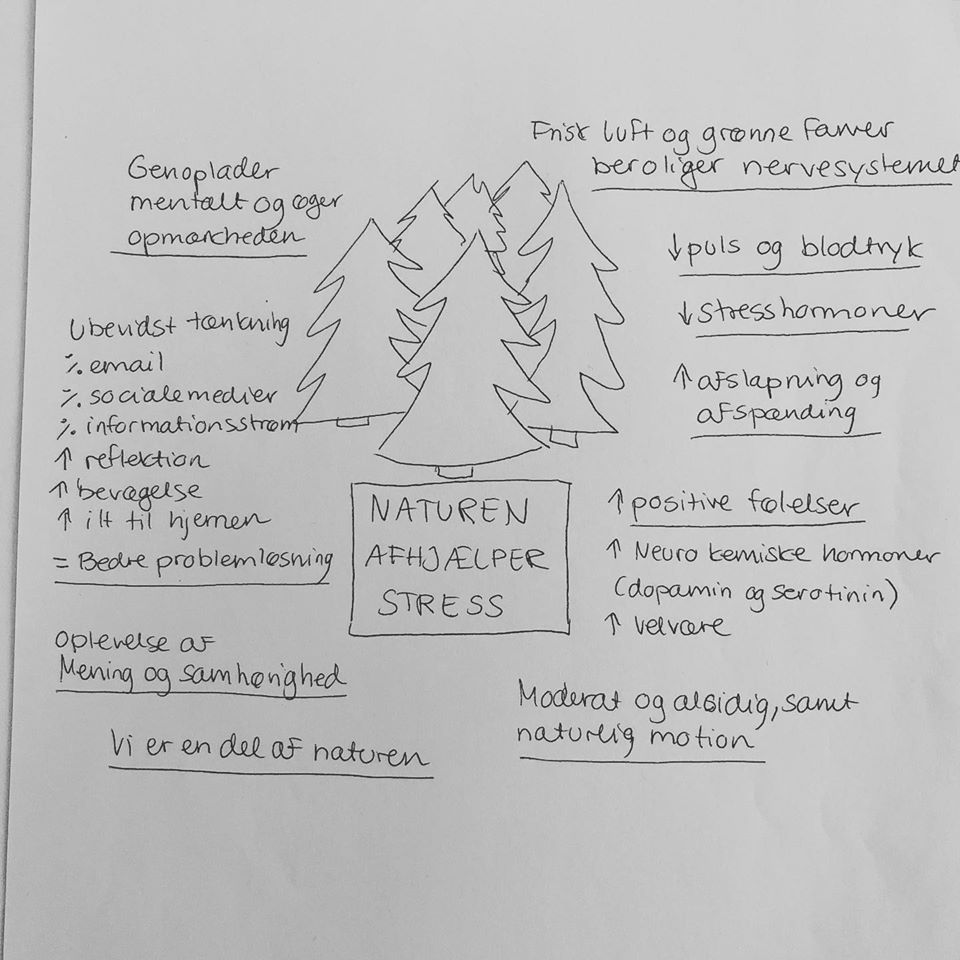 Genoplader
mentalt og øger
opmærkheden
Ubevidst tænkning
٪ email
٪ socialemedier
٪ informationsstrøm
↑ reflektion
↑ bevægelse
↑ ilt til hjernen
= Bedre problemløsning
Oplevelse af
Mening og samhørighed
Vi er en del af naturen
NATUREN
AFHJÆLPER
STRESS
Frisk luft og grønne farver
beroliger nervesystemet
↓ puls og blodtryk
↓ stresshormoner
↑ afslapning og
afspænding
↑ positive følelser
↑ Neuro kemiske hormoner
(dopamin og serotinin)
↑ velvære
Moderat og alsidig, samt
naturlig motion